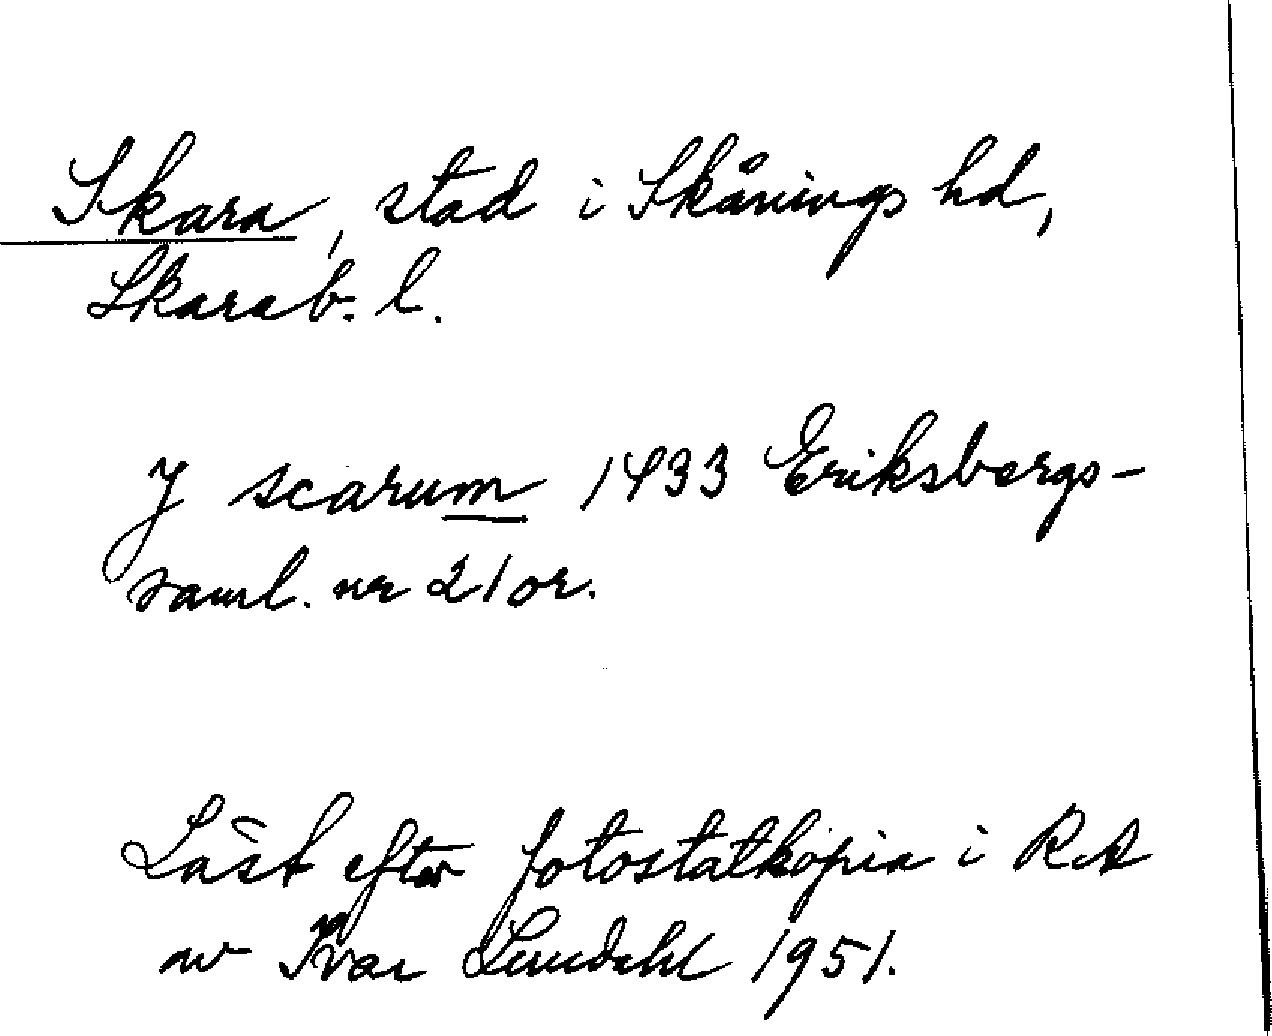 Skara, stad i Skånings hd,
Skarab. l.
J scarum 1433 Eriksbergs-
saml. nr 21 or.
Läst efter fotostatkopia i RA
av Ivar Lundahl 1951.